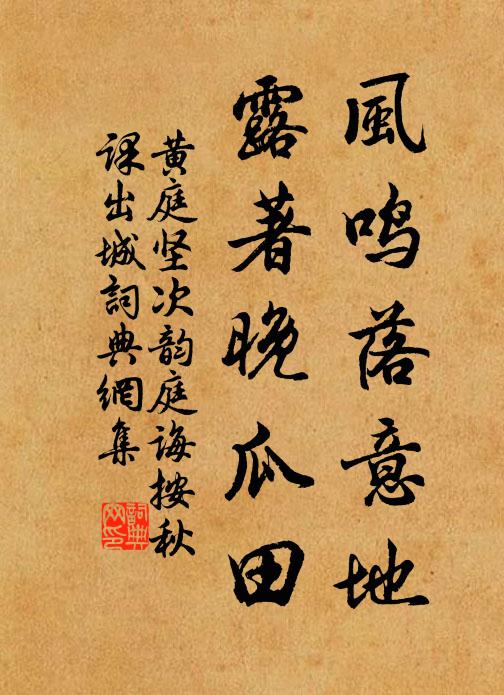 風鸣落意地
露著晚瓜田
黄庭坚次韵庭诲按秋
课出城詞典網集
詞典
网印